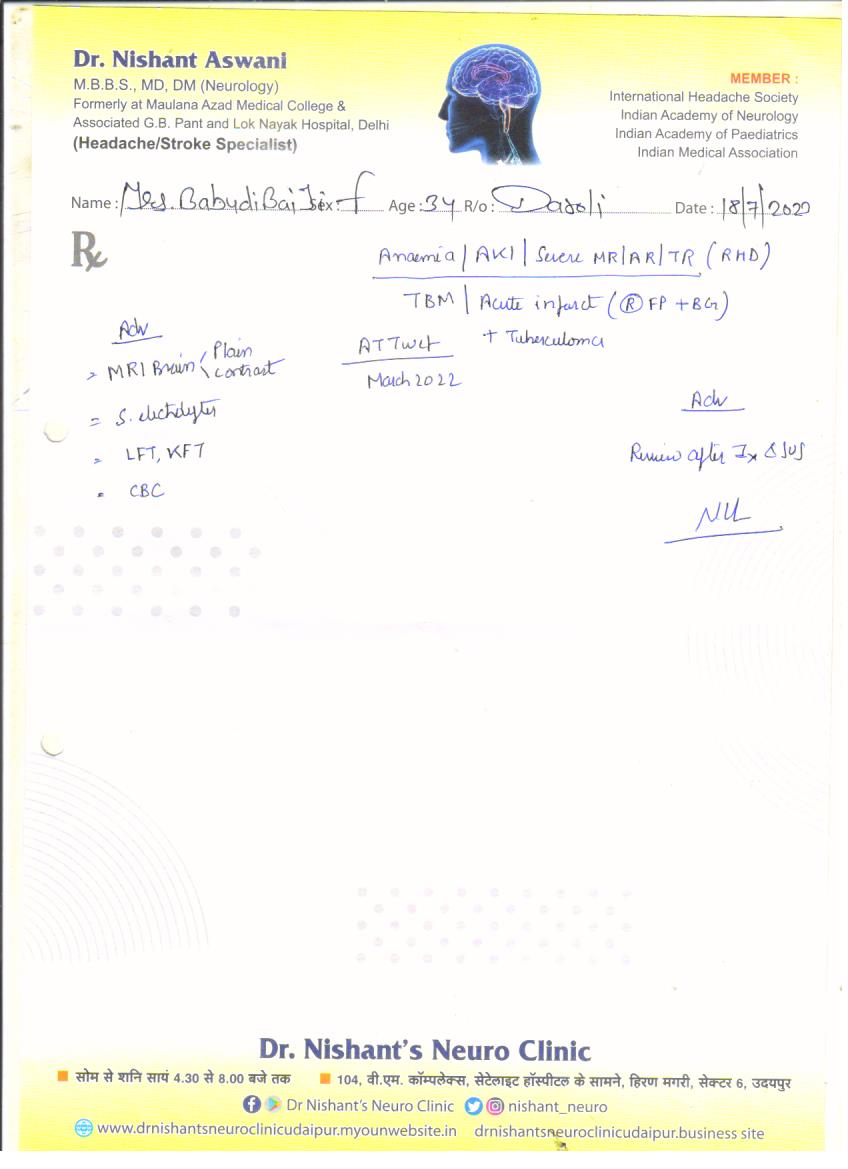 Dr. Nishant Aswani
M.B.B.S., MD, DM (Neurology)
Formerly at Maulana Azad Medical College &
Associated G.B. Pant and Lok Nayak Hospital, Delhi
(Headache/Stroke Specialist)
MEMBER :
International Headache Society
Indian Academy of Neurology
Indian Academy of Paediatrics
Indian Medical Association
Name : Mrs. Babudi Bai Sex : f Age : 34 R/o : Date : 18/7/2022
Rx
Anaemia / AKI / Severe MR/AR/TR (RHD)
TBM / Acute infarct (Ⓡ FP + BG)
+ Tuberculoma
ATT
March 2022
Adv
MRI Brain / Plain \ contrast
= S. electrolytes
LFT, KFT
CBC
Adv
Review after Ix & SOS
Dr. Nishant's Neuro Clinic
सोम से शनि सायं 4.30 से 8.00 बजे तक
104, वी.एम. कॉम्पलेक्स, सेटेलाइट हॉस्पीटल के सामने, हिरण मगरी, सेक्टर 6, उदयपुर
Dr Nishant's Neuro Clinic nishant_neuro
www.drnishantsneuroclinicudaipur.myounwebsite.in drnishantsneuroclinicudaipur.business site